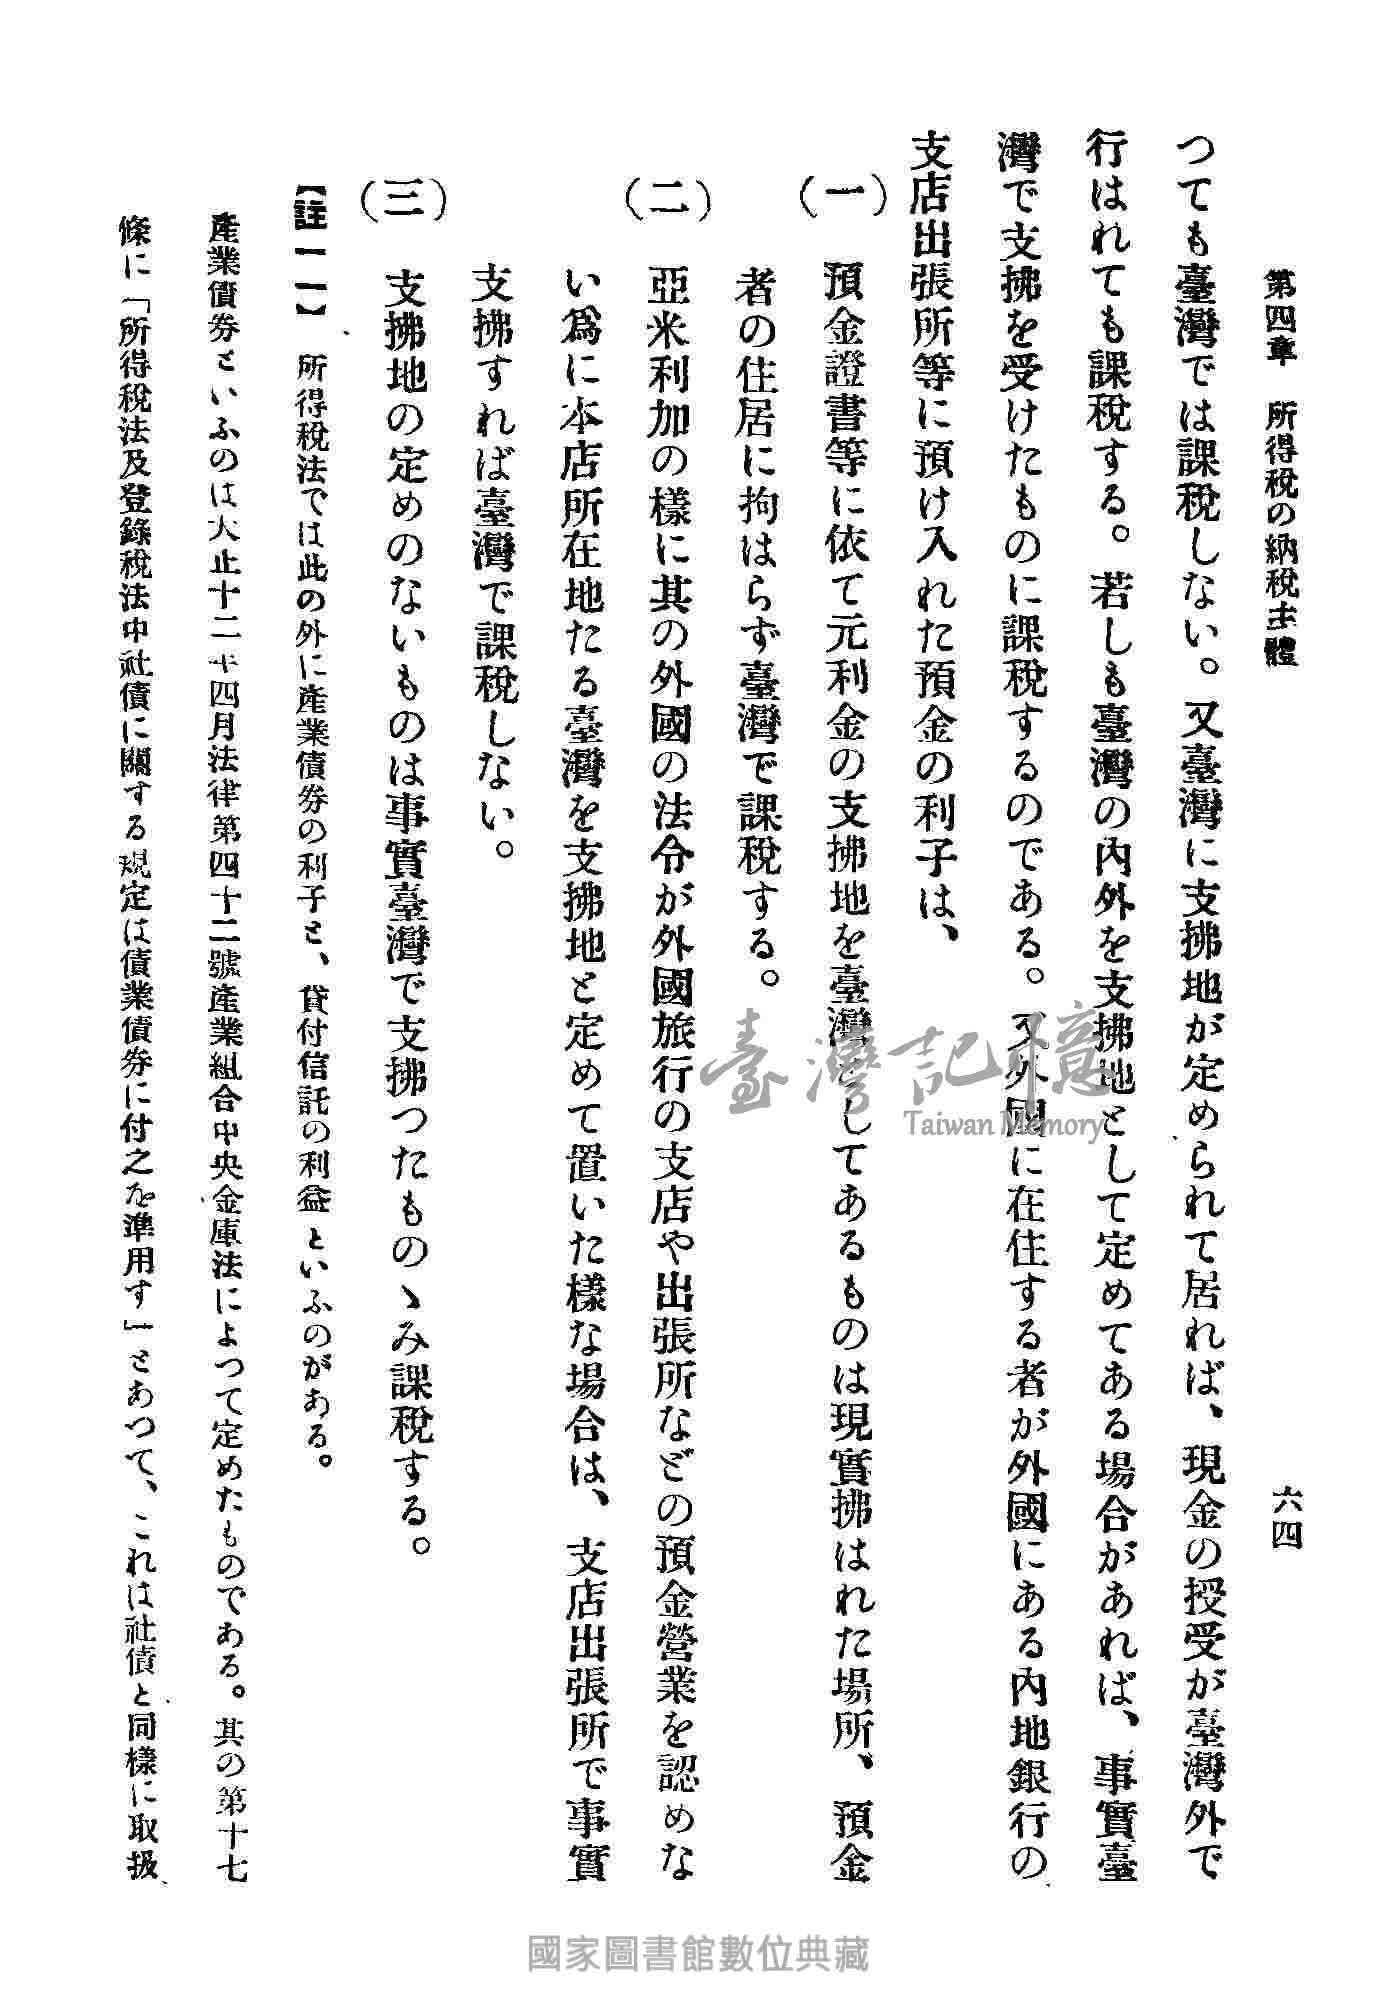 第四章　所得稅の納稅主體
六四
つても臺灣では課稅しない。又臺灣に支拂地が定められて居れば、現金の授受が臺灣外で
行はれても課稅する。若しも臺灣の內外を支拂地として定めてある場合があれば、事實臺
灣で支拂を受けたものに課稅するのである。又外國に在住する者が外國にある內地銀行の
支店出張所等に預け入れた預金の利子は、
（一）　預金證書等に依て元利金の支拂地を臺灣としてあるものは現實拂はれた場所、預金
者の住居に拘はらず臺灣で課稅する。
（二）　亞米利加の樣に其の外國の法令が外國旅行の支店や出張所などの預金營業を認めな
い爲に本店所在地たる臺灣を支拂地と定めて置いた樣な場合は、支店出張所で事實
支拂すれば臺灣で課稅しない。
（三）　支拂地の定めのないものは事實臺灣で支拂つたものゝみ課稅する。
【註一一】　所得稅法では此の外に產業債券の利子と、貸付信託の利益といふのがある。
產業債券といふのは大正十二年四月法律第四十二號產業組合中央金庫法によつて定めたものである。其の第十七
條に「所得稅法及登錄稅法中社債に關する規定は債業債券に付之を準用す」とあつて、これは社債と同樣に取扱
臺灣記憶
Taiwan Memory
國家圖書館數位典藏